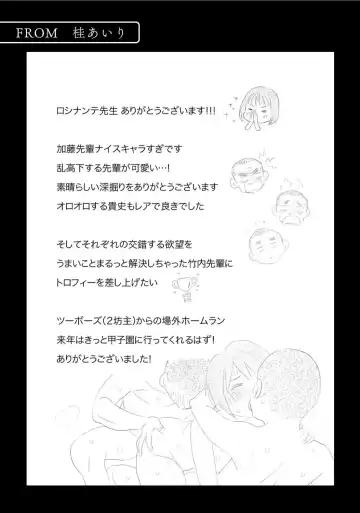 FROM 桂あいり
ロシナンテ先生 ありがとうございます!!!
加藤先輩ナイスキャラすぎです
乱高下する先輩が可愛い…!
素晴らしい深掘りをありがとうございます
オロオロする貴史もレアで良きでした
そしてそれぞれの交錯する欲望を
うまいことまるっと解決しちゃった竹内先輩に
トロフィーを差し上げたい
ツーボーズ(2坊主)からの場外ホームラン
来年はきっと甲子園に行ってくれるはず!
ありがとうございました!